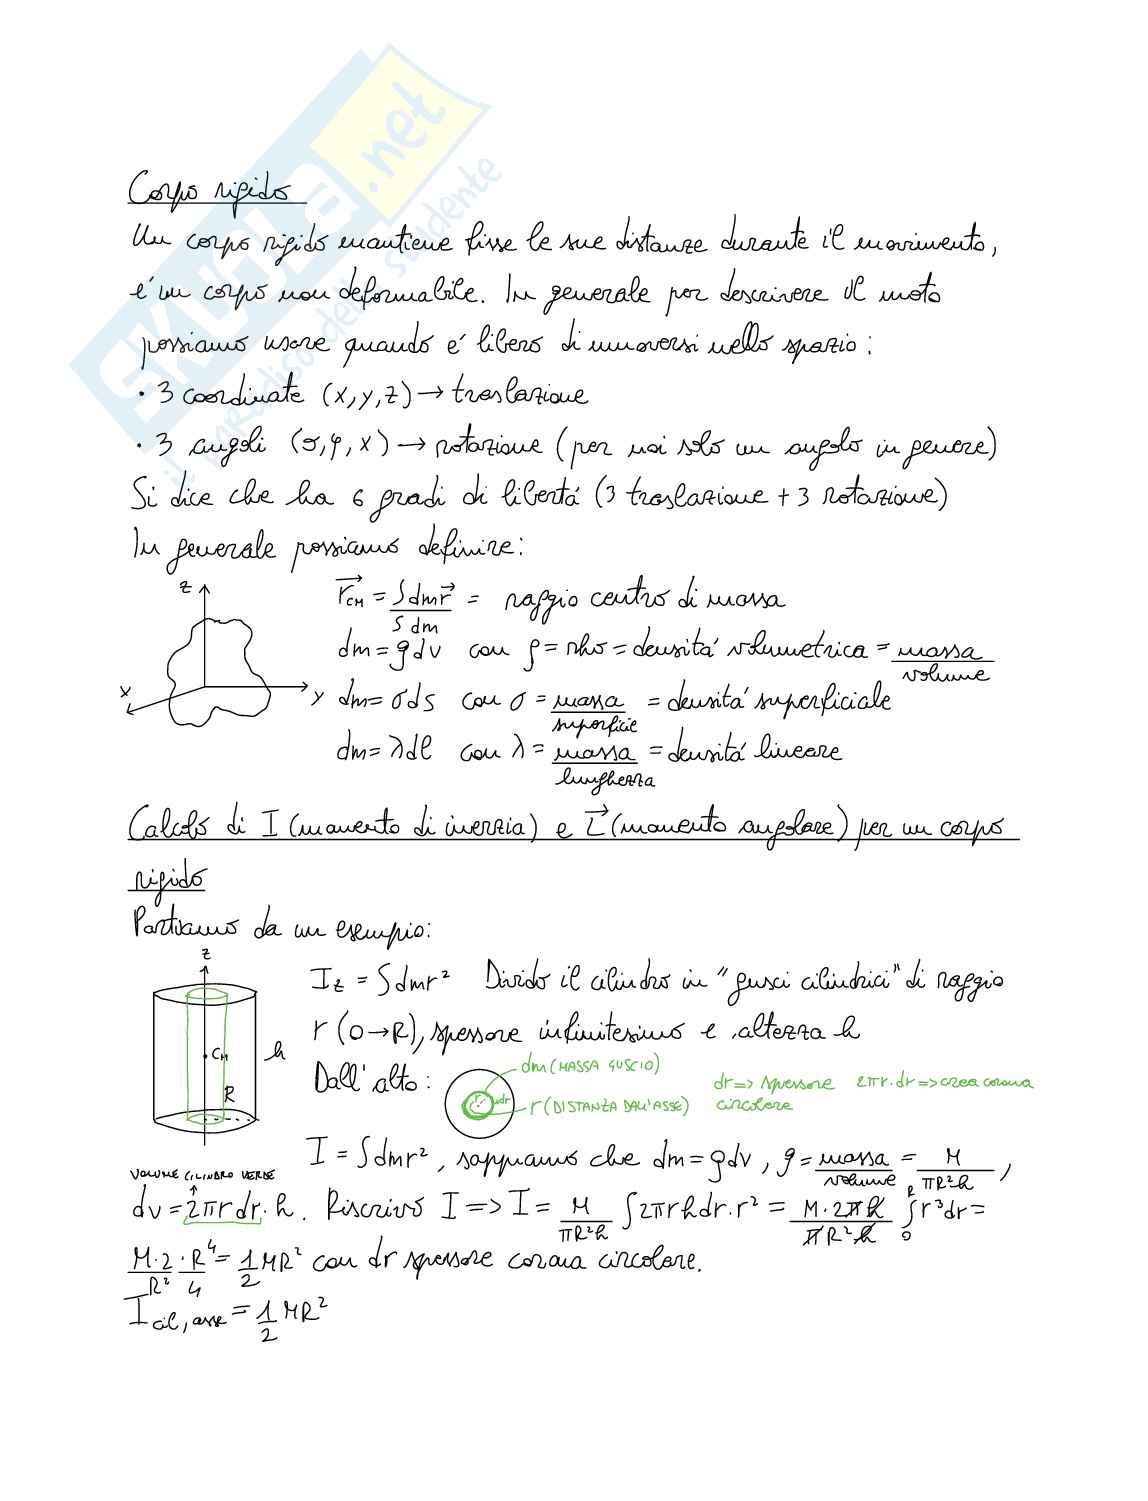 SKUOLA.net
il paradiso dello studente
Corpo rigido
Un corpo rigido mantiene fisse le sue distanze durante il movimento,
é un corpo non deformabile. In generale per descrivere il moto
possiamo usare quando é libero di muoversi nello spazio:
• 3 coordinate (x,y,z) → traslazione
• 3 angoli (σ,φ,x) → rotazione (per noi solo un angolo in genere)
Si dice che ha 6 gradi di libertá (3 traslazione + 3 rotazione)
In generale possiamo definire:
z
x
y
r⃗CM = ∫dm r⃗ / ∫dm = raggio centro di massa
dm = ρdv con ρ = rho = densitá volumetrica = massa / volume
dm = σds con σ = massa / superficie = densitá superficiale
dm = λdl con λ = massa / lunghezza = densitá lineare
Calcolo di I (momento di inerzia) e L⃗ (momento angolare) per un corpo
rigido
Partiamo da un esempio:
z
CM
h
R
Iz = ∫dmr² Divido il cilindro in "gusci cilindrici" di raggio
r (0→R), spessore infinitesimo e altezza h
Dall'alto:
dm (MASSA GUSCIO)
r
dr
r (DISTANZA DALL'ASSE)
dr => spessore 2πr·dr => crea corona
circolare
I = ∫dmr², sappiamo che dm = ρdv, ρ = massa / volume = M / πR²h,
VOLUME CILINDRO VERDE
dv = 2πrdr·h. Riscrivo I => I = M / πR²h ∫2πrhdr·r² = M·2πh / πR²h ∫₀ᴿ r³dr =
M·2 / R² · R⁴ / 4 = 1/2 MR² con dr spessore corona circolare.
I cil, asse = 1/2 MR²